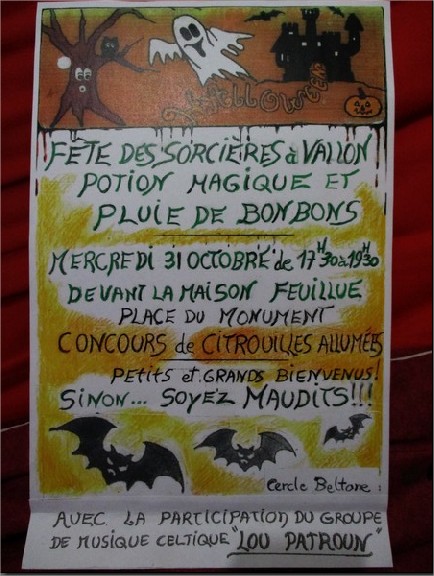 Halloween
FÊTE DES SORCIÈRES à VALLON
POTION MAGIQUE ET
PLUIE DE BONBONS
MERCREDI 31 OCTOBRE de 17H30 à 19H30
DEVANT LA MAISON FEUILLUE
PLACE DU MONUMENT
CONCOURS de CITROUILLES ALLUMÉES
PETITS et GRANDS BIENVENUS!
SINON... SOYEZ MAUDITS!!!
Cercle Beltane :
AVEC LA PARTICIPATION DU GROUPE
DE MUSIQUE CELTIQUE "LOU PATROUN"